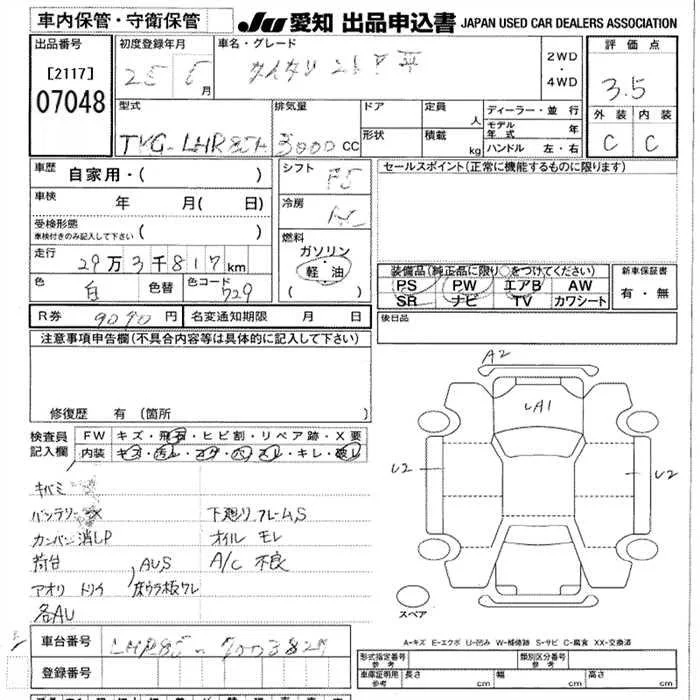 車内保管・守衛保管
JU 愛知 出品申込書 JAPAN USED CAR DEALERS ASSOCIATION
出品番号
[2117]
07048
初度登録年月
25 月
車名・グレード
2WD
・
4WD
評価点
3.5
外装 内装
C C
型式
TKG-LHR85A
排気量
3000 CC
ドア
形状
定員 人
積載 kg
ディーラー・並 行
モデル年式 年
ハンドル 左・右
車歴
自家用・( )
車検
年 月( 日)
受検形態
車検付きのみ記入して下さい ( )
走行
29万3千817km
色
白
色替
色コード
729
シフト
F5
冷房
AC
燃料
ガソリン
・
軽 油
( )
セールスポイント(正常に機能するものに限ります)
装備品(純正品に限り○をつけてください)
PS PW エアB AW
SR ナビ TV カワシート
新車保証書
有・無
R券 9090 円
名変通知期限 月 日
後日品
注意事項申告欄(不具合内容等は具体的に記入して下さい)
修復歴 有 (箇所 )
検査員
記入欄
FW キズ・飛石・ヒビ割・リペア跡・X 要
内装 キズ・汚レ・コゲ・穴・スレ・キレ・破レ
キバミ
バッテリーX
下廻りフレームS
カンバン消しP
オイル モレ
荷台
AUS
A/C 不良
アオリ トリイ
床ウラ板ワレ
各AU
A2
LA1
U2
U2
スペア
A-キズ E-エクボ U-凹み W-補修跡 S-サビ C-腐食 XX-交換済
車台番号
LHR85-
登録番号
形式指定番号
参考
類別区分番号
参考
車庫証明用
参考
長さ cm
幅 cm
高さ cm